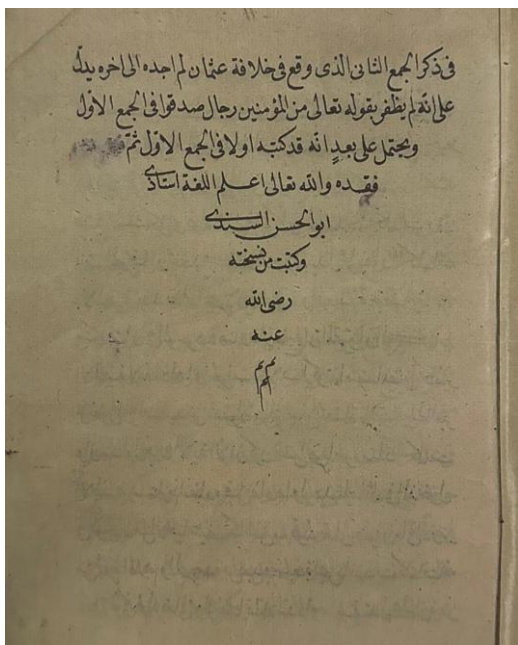 فى ذكر الجمع الثانى الذى وقع فى خلافة عثمان لم اجده الى اخره يدل
على انه لم يظفر بقوله تعالى من المؤمنين رجال صدقوا فى الجمع الاول
ويحتمل على بعدٍ انه قد كتبه اولا فى الجمع الاول ثم
فقده والله تعالى اعلم الفه استاذى
ابو الحسن السندى
وكتبت من نسخته
رضى الله
عنه
م م
م